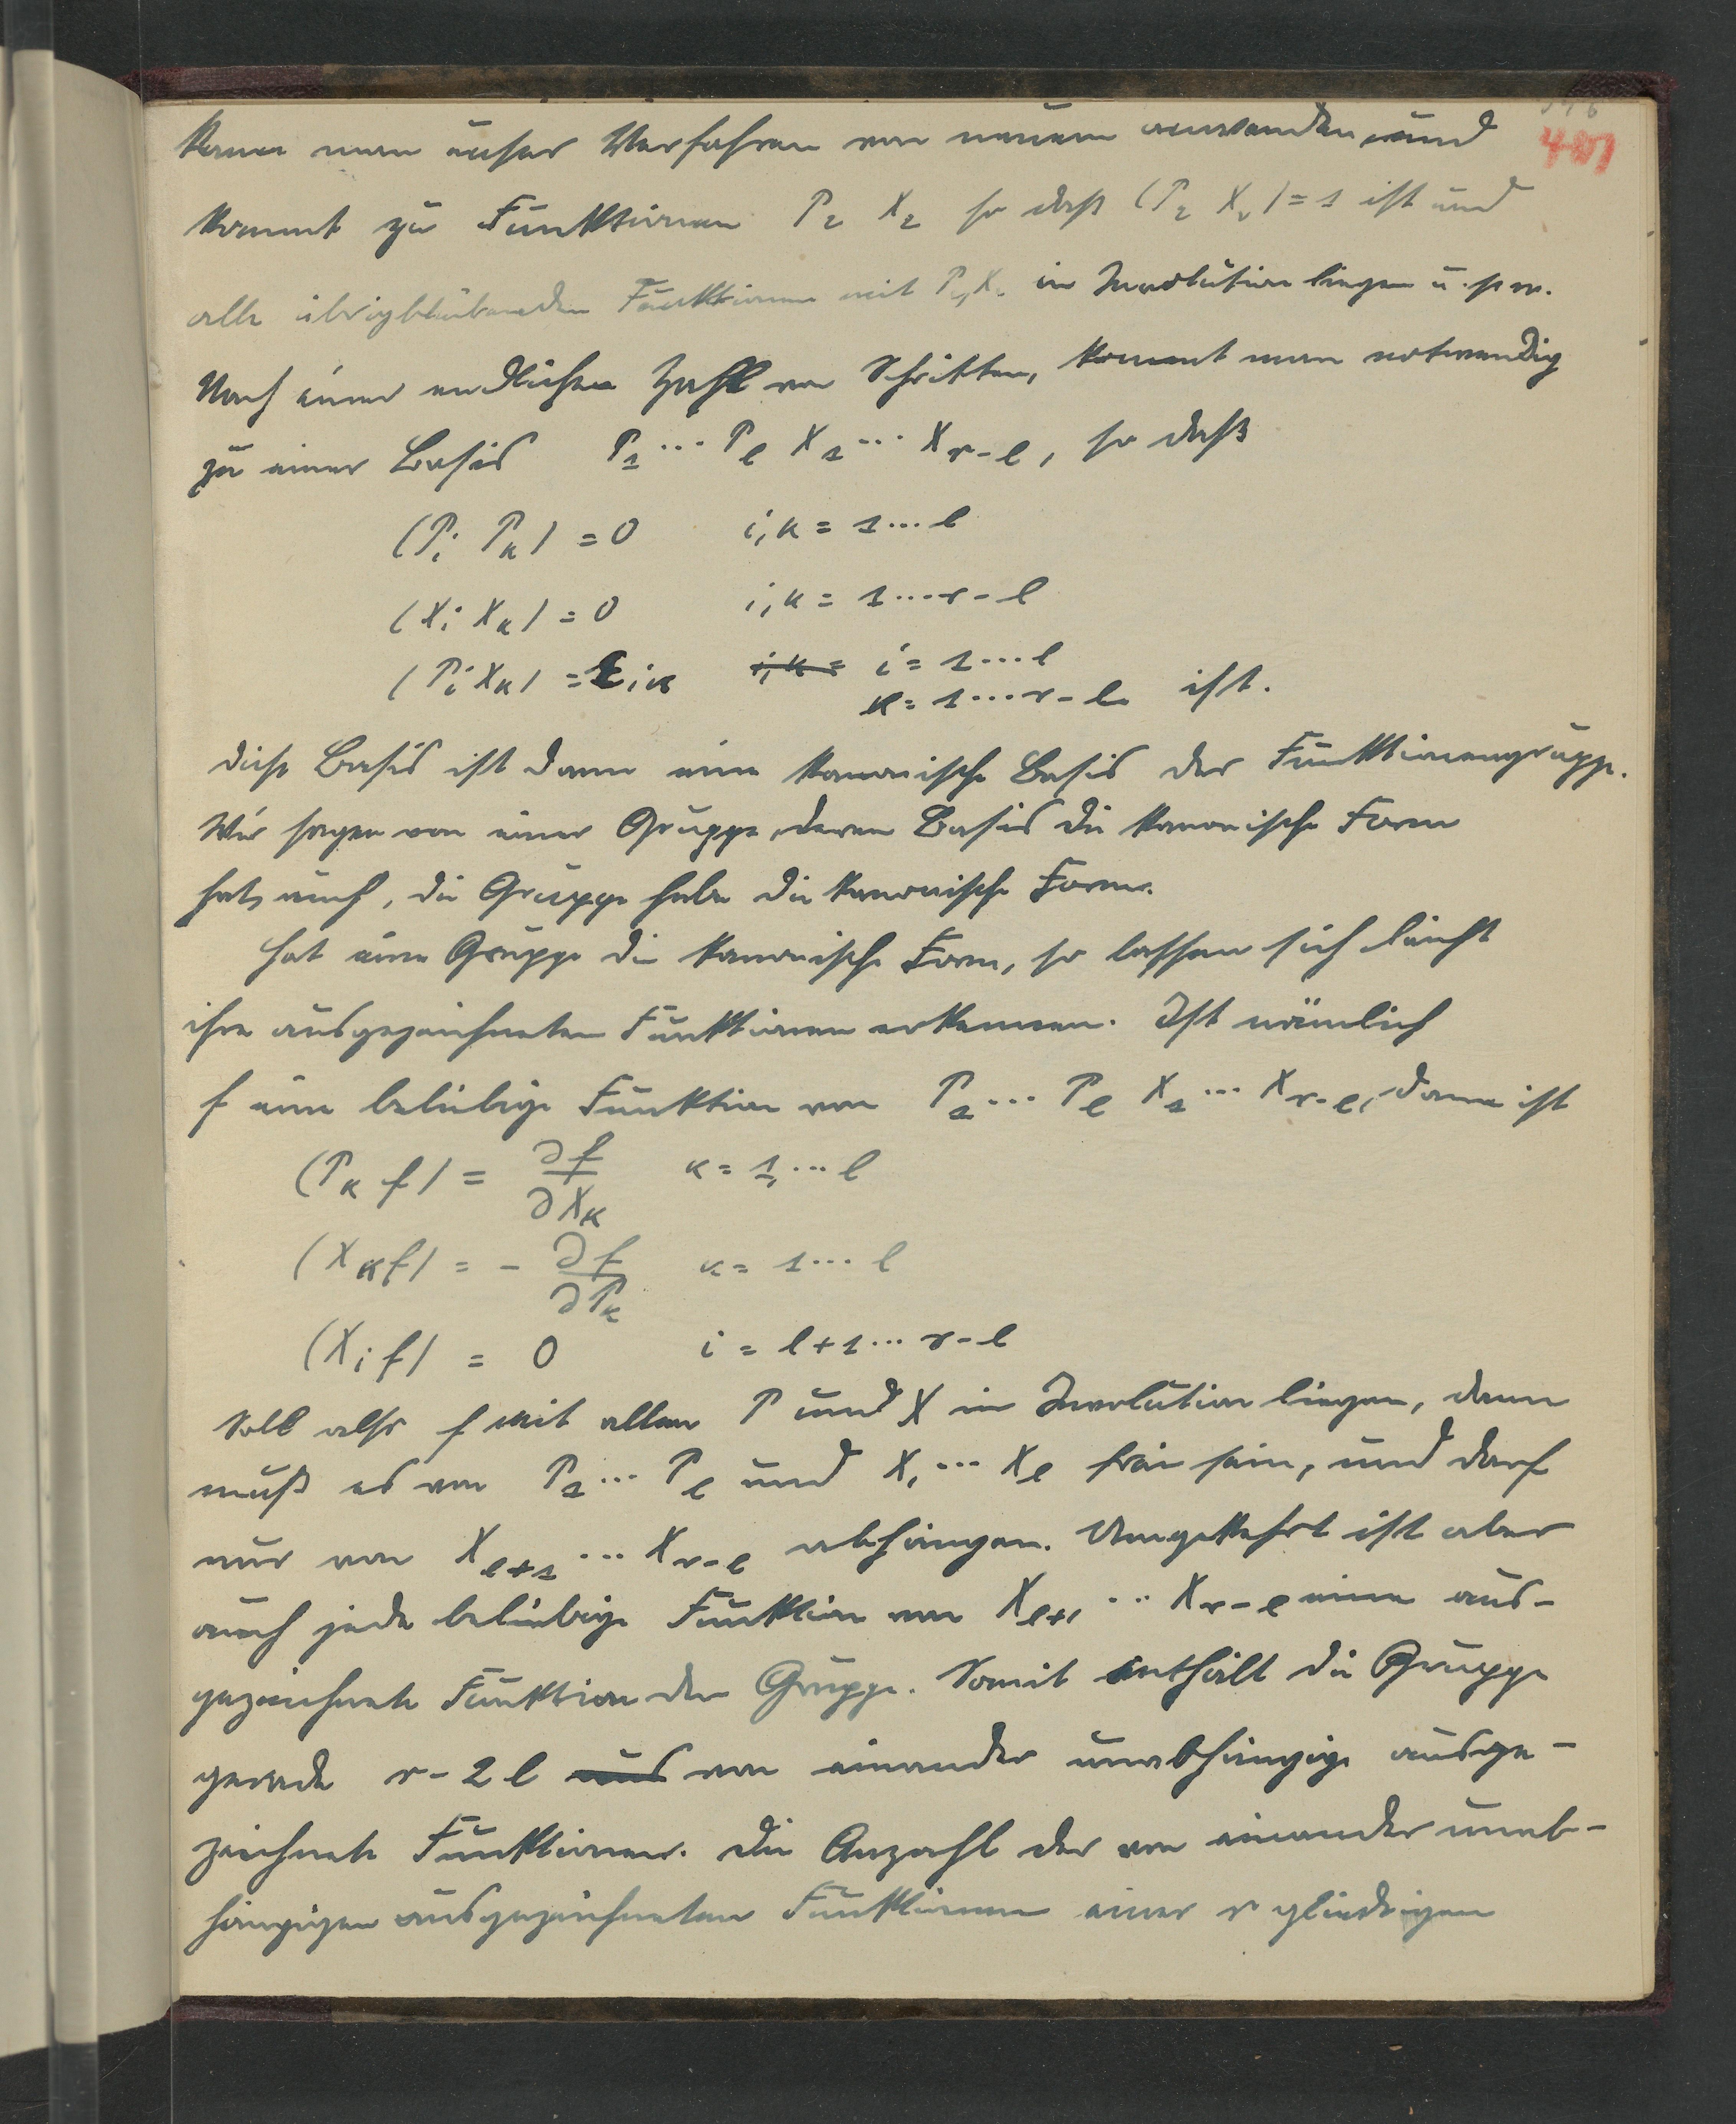 401
kann man unser Verfahren von neuem anwenden, und
kommt zu Funktionen P₂ X₂ so daß (P₂ X₂) = 1 ist und
alle übrigbleibenden Funktionen mit P₂, X₂ in Involution liegen u. s. w.
Nach einer endlichen Zahl von Schritten, kommt man notwendig
zu einer Basis P₁ ··· P_l X₁ ··· X_{r-l}, so daß
(P_i P_κ) = 0 i, κ = 1 ··· l
(X_i X_κ) = 0 i, κ = 1 ··· r-l
(P_i X_κ) = ε_{iκ} i, κ = i = 1 ··· l
κ = 1 ··· r-l ist.
Diese Basis ist dann eine kanonische Basis der Funktionengruppe.
Wir sagen von einer Gruppe, deren Basis die kanonische Form
hat, auch, die Gruppe habe die kanonische Form.
Hat eine Gruppe die kanonische Form, so lassen sich leicht
ihre ausgezeichneten Funktionen erkennen. Ist nämlich
f eine beliebige Funktion von P₁ ··· P_l X₁ ··· X_{r-l}, dann ist
(P_κ f) = ∂f/∂X_κ κ = 1, ··· l
(X_κ f) = - ∂f/∂P_κ κ = 1 ··· l
(X_i f) = 0 i = l+1 ··· r-l
Soll also f mit allen P und X in Involution liegen, dann
muß es von P₁ ··· P_l und X₁ ··· X_l frei sein, und darf
nur von X_{l+1} ··· X_{r-l} abhängen. Umgekehrt ist aber
auch jede beliebige Funktion von X_{l+1} ··· X_{r-l} eine aus-
gezeichnete Funktion der Gruppe. Somit enthält die Gruppe
gerade r-2l aus von einander unabhängige ausge-
zeichnete Funktionen. Die Anzahl der von einander unab-
hängigen ausgezeichneten Funktionen einer r gliedrigen